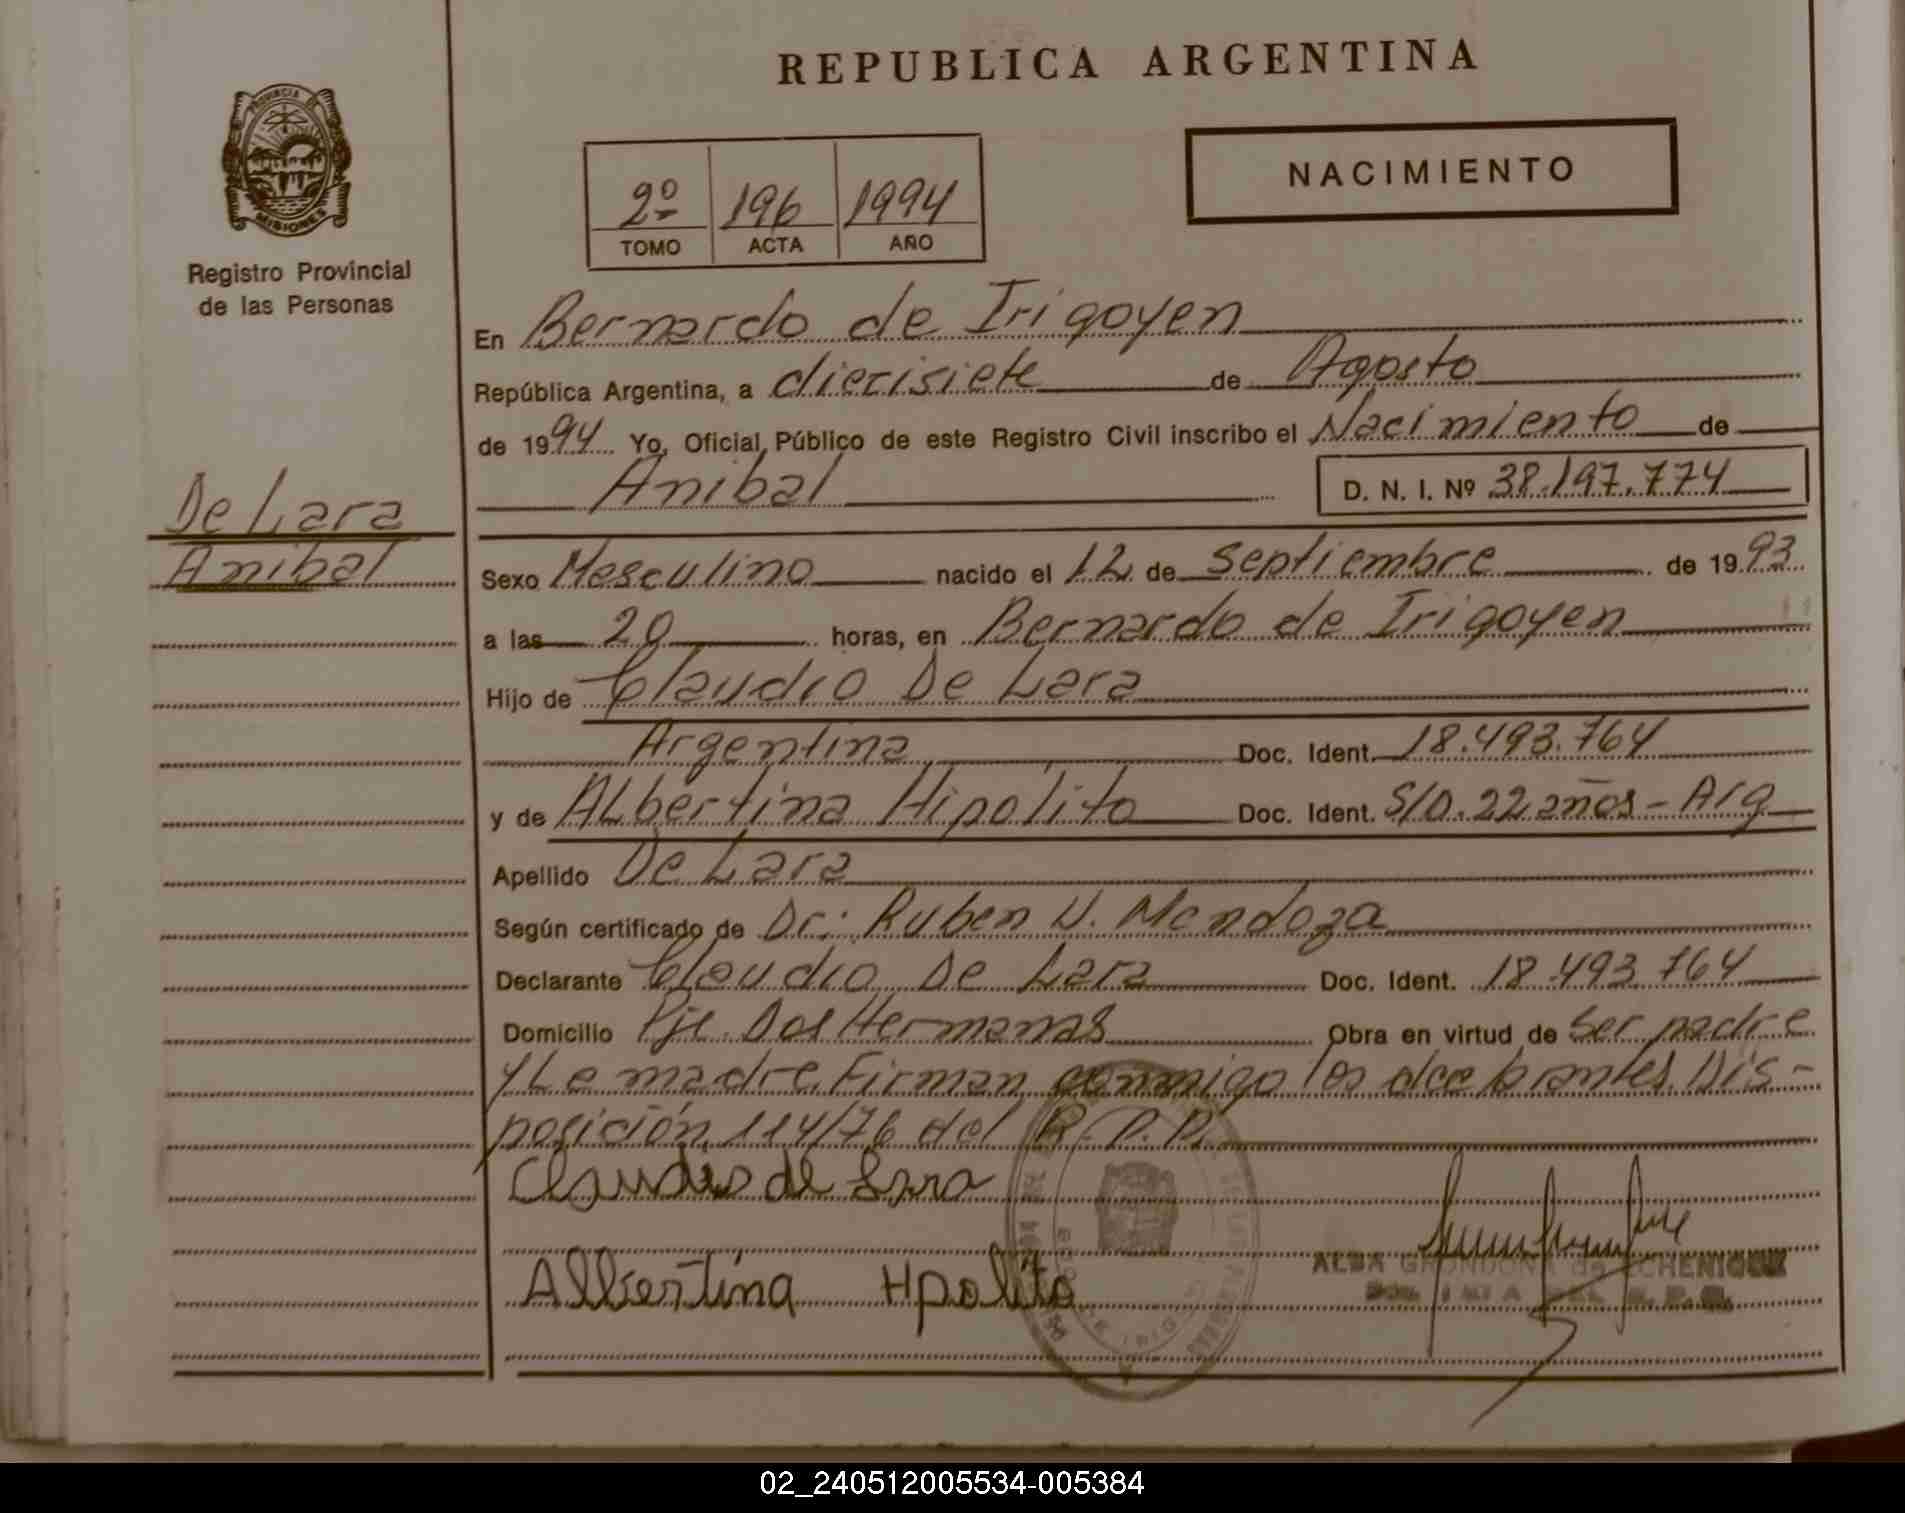 REPUBLICA ARGENTINA
PROVINCIA DE MISIONES
Registro Provincial
de las Personas
NACIMIENTO
2º 196 1994
TOMO ACTA AÑO
En Bernardo de Irigoyen
República Argentina, a diecisiete de Agosto
de 1994 Yo, Oficial Público de este Registro Civil inscribo el Nacimiento de
Anibal D. N. I. Nº 38.197.774
De Lara
Anibal
Sexo Masculino nacido el 12 de Septiembre de 1993
a las 20 horas, en Bernardo de Irigoyen
Hijo de Claudio De Lara
Argentina Doc. Ident. 18.493.764
y de Albertina Hipólito Doc. Ident. S/D. 22 años - Arg
Apellido De Lara
Según certificado de Dr: Ruben W. Mendoza
Declarante Claudio De Lara Doc. Ident. 18.493.764
Domicilio Pje. Dos Hermanas Obra en virtud de ser padre
y La madre. Firman conmigo los declarantes. Dis-
posición 114/76 del R.P.P.
Claudio de Lara
Albertina Hpolito
ALBA GRONDONA de ECHENIQUE
02_240512005534-005384